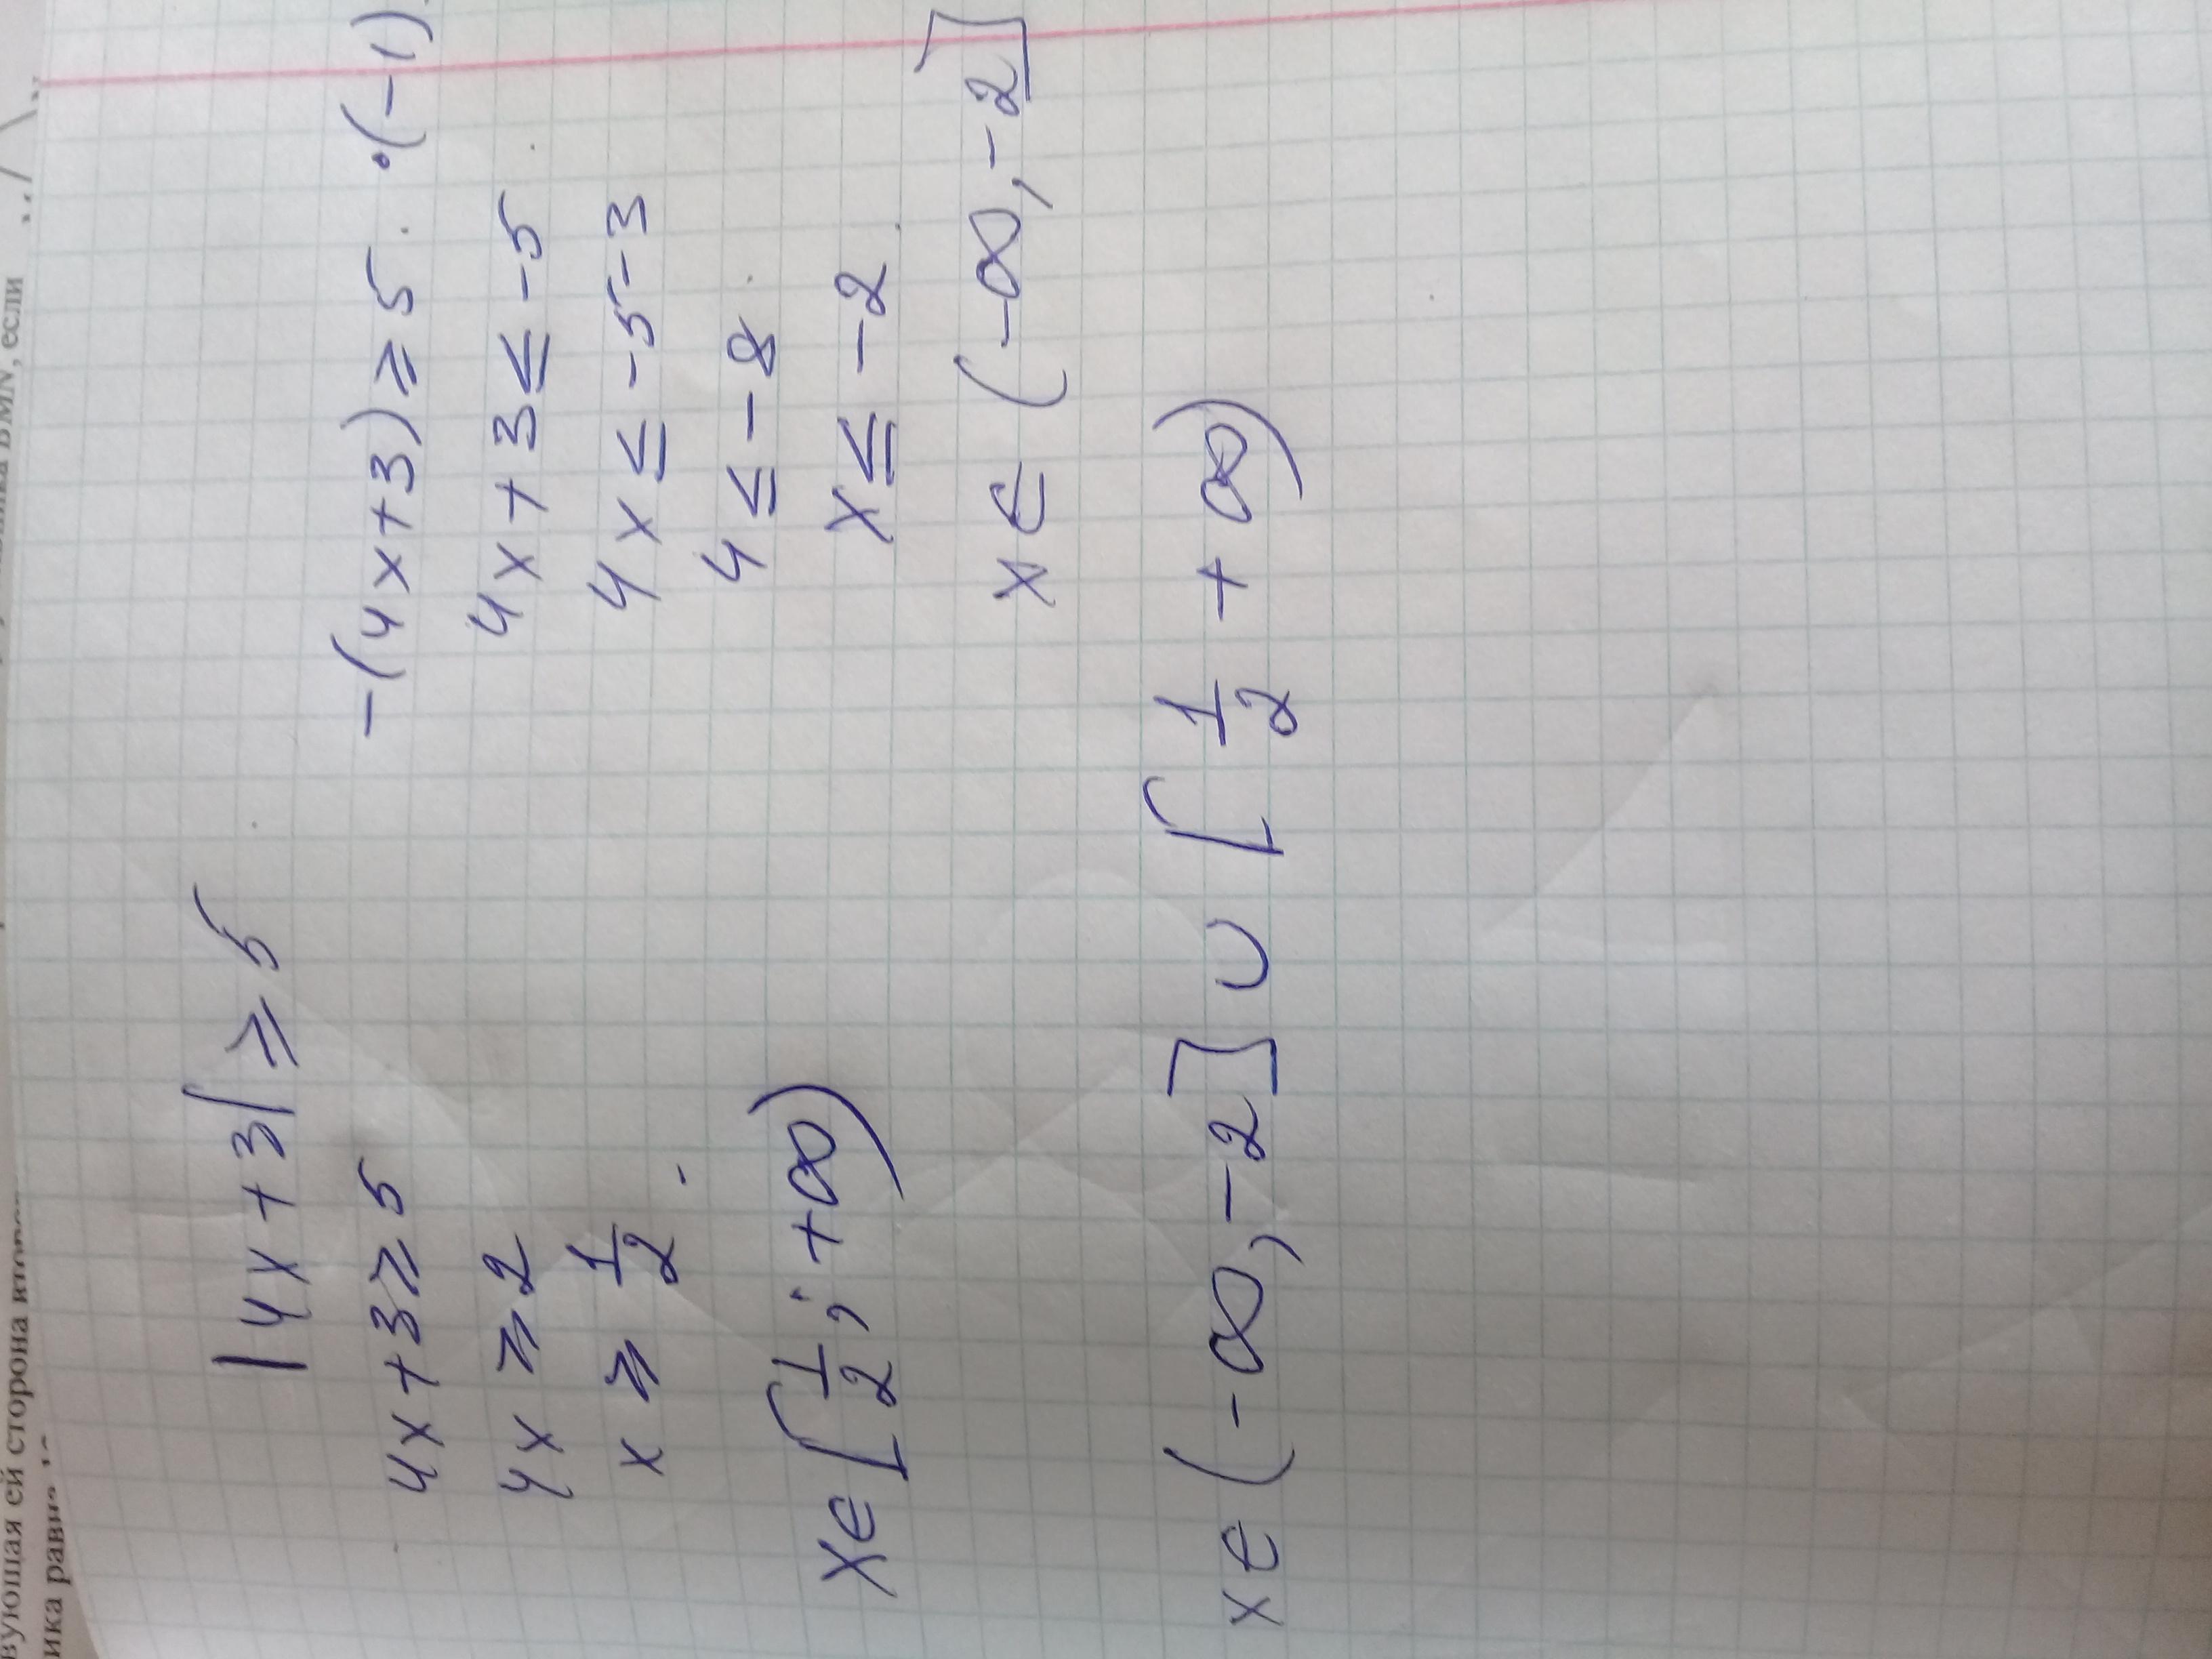 вующая ей сторона
ика равна
ика BMN, если
|4x+3| ≥ 5
4x+3 ≥ 5
4x ≥ 2
x ≥ 1/2
x ∈ [1/2; +∞)
-(4x+3) ≥ 5 · (-1)
4x+3 ≤ -5
4x ≤ -5-3
4 ≤ -8
x ≤ -2
x ∈ (-∞, -2]
x ∈ (-∞, -2] ∪ [1/2 +∞)